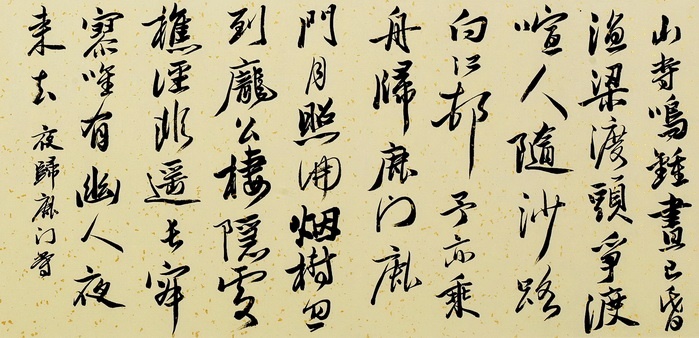 山寺鳴鍾晝已昏
漁梁渡頭爭渡
喧人隨沙路
向江邨予亦乘
舟歸鹿门鹿
門月照開烟樹忽
到龐公棲隱處
樵徑非遥長寂
寥唯有幽人夜
来去 夜歸鹿门寺